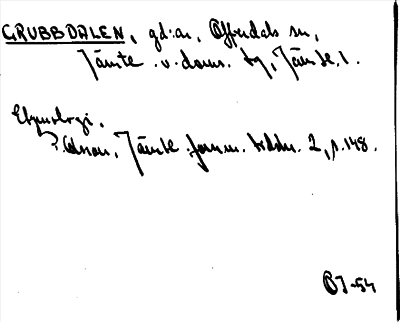 GRUBBDALEN, gd:ar, Offerdals sn,
Jämtl. v. doms. tg, Jämtl. l.
Etymologi.
P. Olsson, Jämtl. fornm. tidskr. 2, s. 148.
BJ-54